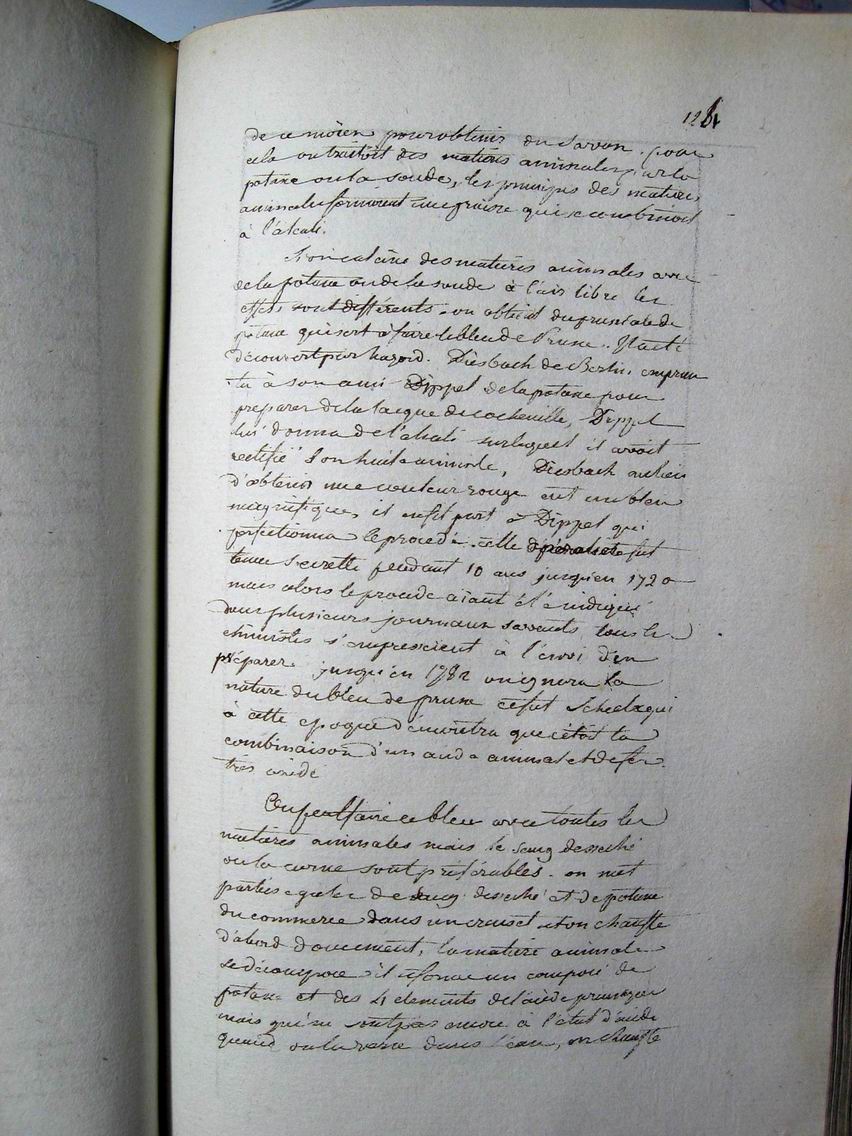 128
de ce moïen pour obtenir du savon. pour
cela on traitoit des matieres animales par la
potasse ou la soude, les principes des matieres
animales formoient une graisse qui se combinoit
à l'alcali.
Si on calcine des matieres animales avec
de la potasse ou de la soude à l'air libre les
effets sont différents. on obtient du prussiate de
potasse qui sert à faire le bleu de Prusse. Il a été
découvert par hazard. Diesbach de Berlin emprun
ta à son ami Dippel de la potasse pour
préparer de la lacque de cochenille, Dippel
lui donna de l'alcali sur lequel il avoit
rectifié son huile animale, Diesbach au lieu
d'obtenir une couleur rouge eut un bleu
magnifique, il en fit part à Dippel qui
perfectionna le procédé. elle fut
tenue secrette pendant 10 ans jusqu'en 1720
mais alors le procédé aïant été indiqué
dans plusieurs journaux savants tous les
chimistes s'empressoient à l'envi d'en
préparer. jusqu'en 1782 on ignora la
nature du bleu de prusse ce fut Scheele qui
à cette époque démontra que c'étoit la
combinaison d'un acide animal et de fer
très oxidé
On peut faire ce bleu avec toutes les
matieres animales mais le sang desseché
ou la corne sont préférables. on met
parties egales de sang desseché et de potasse
du commerce dans un creuset et on chauffe
d'abord doucement, la matiere animale
se décompose il se forme un composé de
potasse et des 4 elements de l'acide prussique
mais qui ne sont pas encore à l'état d'acide
quand on la verse dans l'eau, on chauffe